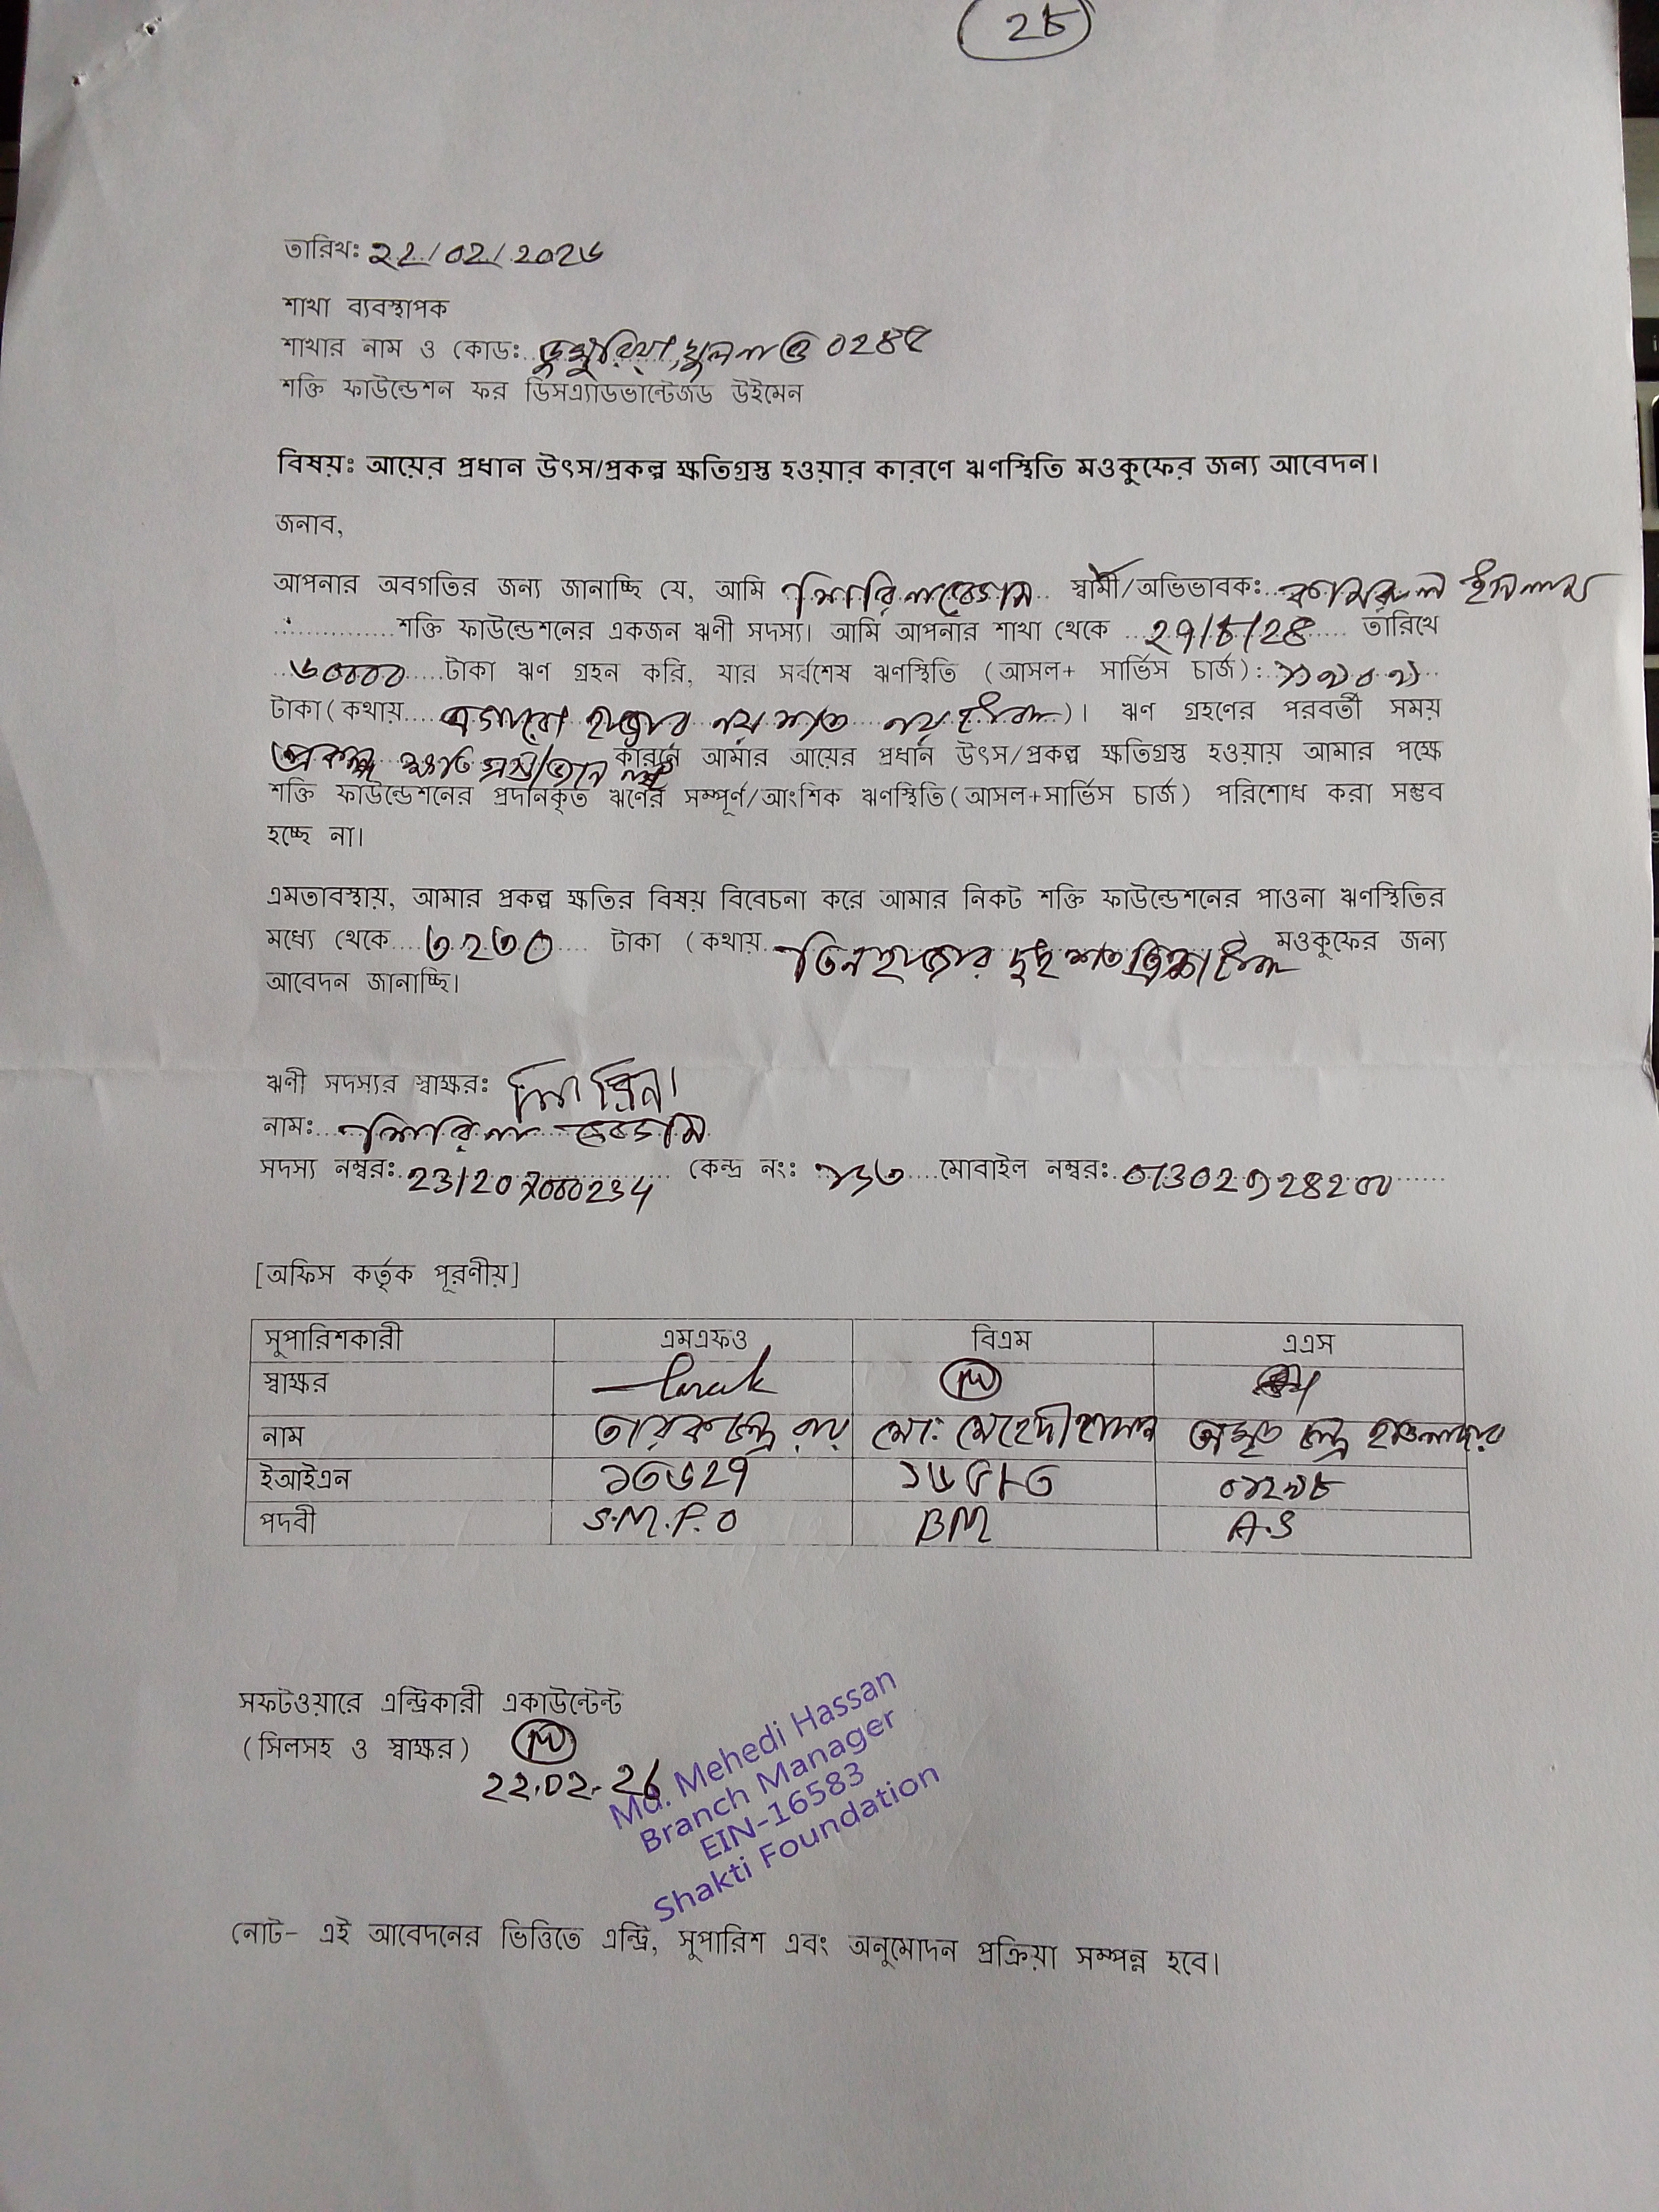 ২৮
তারিখঃ ২২/০২/২০২৬
শাখা ব্যবস্থাপক
শাখার নাম ও কোডঃ ডুমুরিয়া, খুলনা ০২৪৫
শক্তি ফাউন্ডেশন ফর ডিসএ্যাডভান্টেজড উইমেন
বিষয়ঃ আয়ের প্রধান উৎস/প্রকল্প ক্ষতিগ্রস্ত হওয়ার কারণে ঋণস্থিতি মওকুফের জন্য আবেদন।
জনাব,
আপনার অবগতির জন্য জানাচ্ছি যে, আমি শিরিনা বেগম স্বামী/অভিভাবকঃ কামরুল ইসলাম
শক্তি ফাউন্ডেশনের একজন ঋণী সদস্য। আমি আপনার শাখা থেকে ২৭/৮/২৪ তারিখে
৬০০০০ টাকা ঋণ গ্রহন করি, যার সর্বশেষ ঋণস্থিতি (আসল+ সার্ভিস চার্জ): ১১৯০৯
টাকা(কথায় এগারো হাজার নয় শত নয় টাকা)। ঋণ গ্রহণের পরবর্তী সময়
প্রকল্প ক্ষতি গ্রস্ত কারনে আমার আয়ের প্রধান উৎস/প্রকল্প ক্ষতিগ্রস্ত হওয়ায় আমার পক্ষে
শক্তি ফাউন্ডেশনের প্রদানকৃত ঋণের সম্পূর্ণ/আংশিক ঋণস্থিতি(আসল+সার্ভিস চার্জ) পরিশোধ করা সম্ভব
হচ্ছে না।
এমতাবস্থায়, আমার প্রকল্প ক্ষতির বিষয় বিবেচনা করে আমার নিকট শক্তি ফাউন্ডেশনের পাওনা ঋণস্থিতির
মধ্যে থেকে ৩২৩০ টাকা (কথায় তিন হাজার দুই শত ত্রিশ টাকা মওকুফের জন্য
আবেদন জানাচ্ছি।
ঋণী সদস্যর স্বাক্ষরঃ শিরিনা
নামঃ শিরিনা বেগম
সদস্য নম্বরঃ কেন্দ্র নংঃ ১১৩ মোবাইল নম্বরঃ
[অফিস কর্তৃক পূরণীয়]
সুপারিশকারী এমএফও বিএম এএস
স্বাক্ষর
নাম তারক চন্দ্র রায় মোঃ মেহেদী হাসান অমৃত চন্দ্র হাওলাদার
ইআইএন ১৩৬২৭ ১৬৫৮৩ ০১২৯৮
পদবী S.M.F.O BM A.S
সফটওয়ারে এন্ট্রিকারী একাউন্টেন্ট
(সিলসহ ও স্বাক্ষর)
22.02.26
Md. Mehedi Hassan
Branch Manager
EIN-16583
Shakti Foundation
নোট- এই আবেদনের ভিত্তিতে এন্ট্রি, সুপারিশ এবং অনুমোদন প্রক্রিয়া সম্পন্ন হবে।